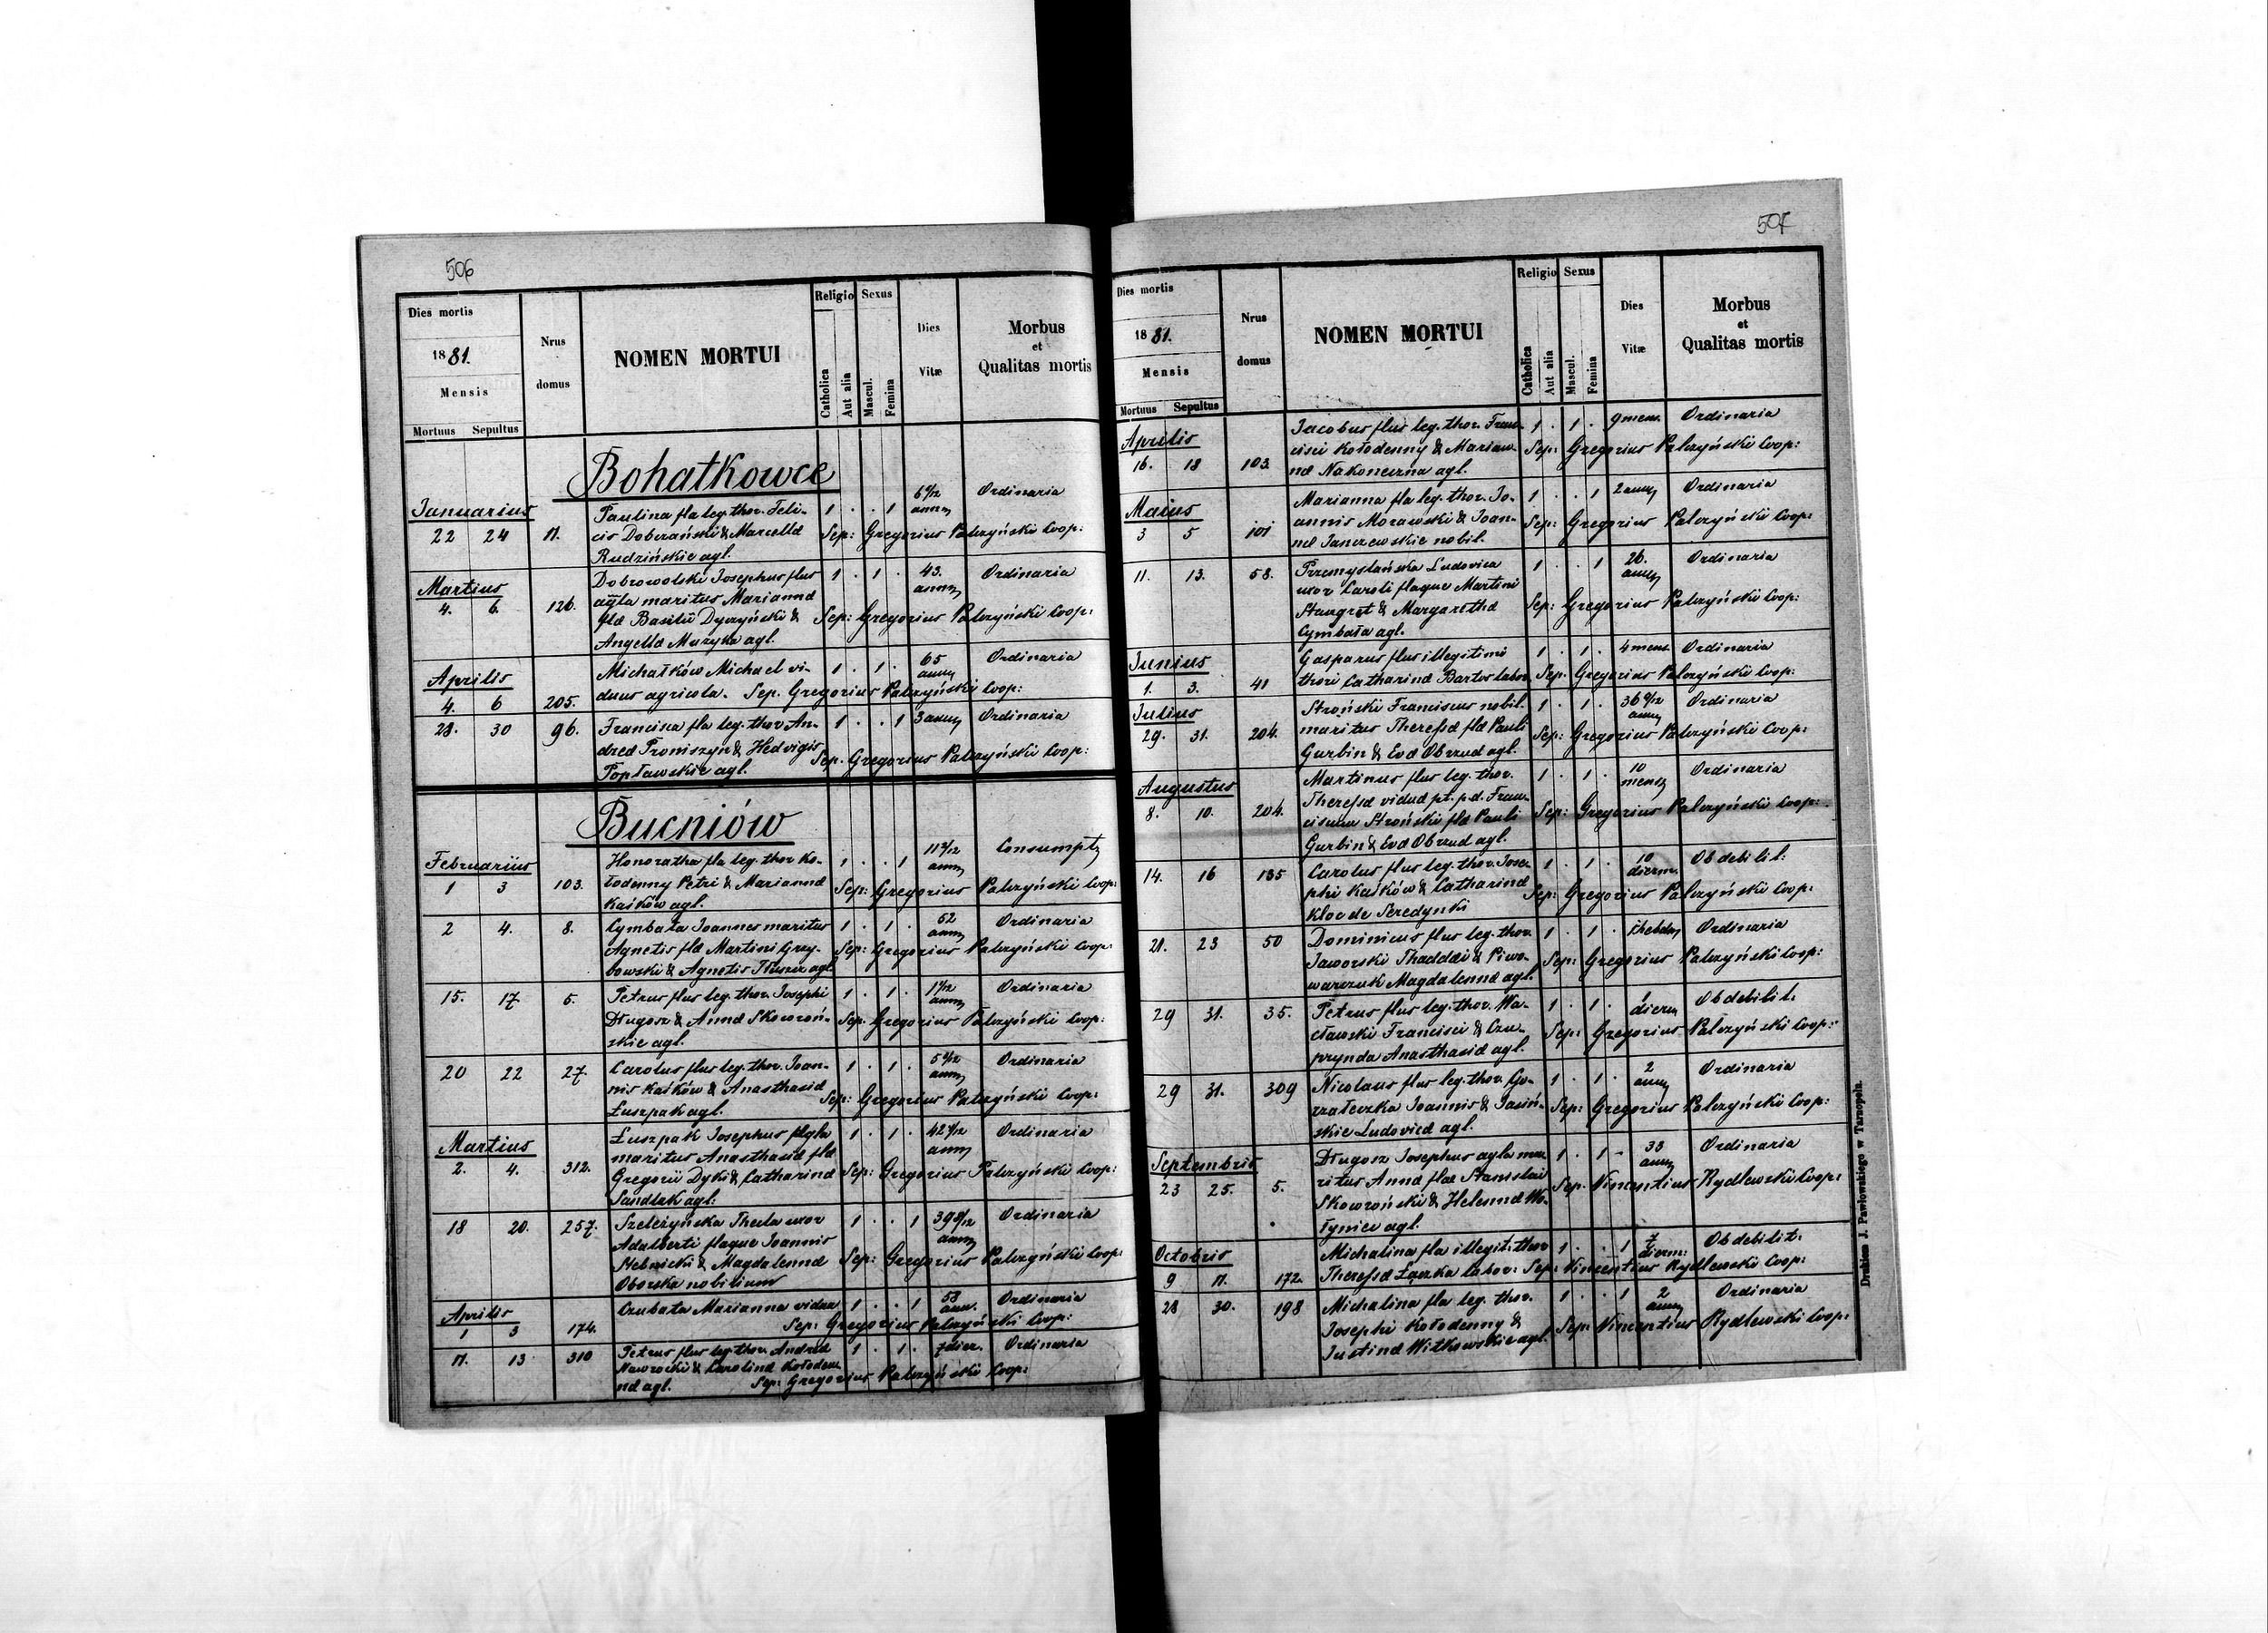 506
Dies mortis
1881.
Mensis
Mortuus Sepultus
Nrus domus
NOMEN MORTUI
Religio
Catholica
Aut alia
Sexus
Mascul.
Femina
Dies Vitæ
Morbus et Qualitas mortis
Bohatkowce
Januarius
22 24 11. Paulina fla leg. thor. Feli- 1 . . 1 6 6/12 annor Ordinaria
cis Dobrzański & Marcella Sep: Gregorius Palczyński Coop:
Rudzińskie agl.
Martius
4. 6. 126. Dobrowolski Josephus flus 1 . 1 . 43. annor Ordinaria
agla maritus Mariannæ
flæ Basilii Dyczyński & Sep: Gregorius Palczyński Coop:
Angella Muzyka agl.
Aprilis
4. 6 205. Michałków Michael vi- 1 . 1 . 65 annor Ordinaria
duus agricola. Sep. Gregorius Palczyński Coop:
28. 30 96. Francisca fla leg. thor. An- 1 . . 1 3 annor Ordinaria
dreæ Proniszyn & Hedvigis Sep. Gregorius Palczyński Coop:
Popławskie agl.
Bucniów
Februarius
1 3 103. Honoratha fla leg. thor. Ko- 1 . . 1 annor Consumpt
łodenny Petri & Mariannæ Sep: Gregorius Palczyński Coop:
Kaśków agl.
2 4. 8. Cymbała Joannes maritus 1 . 1 . 52 annor Ordinaria
Agnetis flæ Martini Grzy- Sep: Gregorius Palczyński Coop:
bowski & Agnetis agl
15. 17 5. Petrus flus leg. thor. Josephi 1 . 1 . annor Ordinaria
Długosz & Annæ Skoworoń- Sep. Gregorius Palczyński Coop:
skie agl.
20 22 27. Carolus flus leg. thor. Joan- 1 . 1 . annor Ordinaria
nis Kaśków & Anasthasiæ Sep: Gregorius Palczyński Coop:
Łuszpak agl.
Martius
2. 4. 312. Łuszpak Josephus agla 1 . 1 . annor Ordinaria
maritus Anasthasiæ flæ
Gregorii Dyki & Catharinæ Sep: Gregorius Palczyński Coop:
Sandlak agl.
18 20. 257. Szeleżyńska Thecla uxor 1 . . 1 39 8/12 annor Ordinaria
Adalberti flaque Joannis
Stebnicki & Magdalennæ Sep: Gregorius Palczyński Coop:
Oborska nobilium
Aprilis
1 3 174. Czubata Marianna vidua 1 . . 1 58 ann. Ordinaria
Sep: Gregorius Palczyński Coop:
11. 13 310 Petrus flus leg. thor. Andreæ 1 . 1 . 7 dier. Ordinaria
Nawrocki & Carolinæ Kołoden-
na agl. Sep: Gregorius Palczyński Coop:
507
Dies mortis
1881.
Mensis
Mortuus Sepultus
Nrus domus
NOMEN MORTUI
Religio
Catholica
Aut alia
Sexus
Mascul.
Femina
Dies Vitæ
Morbus et Qualitas mortis
Aprilis
16. 18 103. Jacobus flus leg. thor. Fran- 1 . 1 . 9 mens. Ordinaria
cisci Kołodenny & Marian- Sep: Gregorius Palczyński Coop:
næ Nakoneczna agl.
Maius
3 5 101 Marianna fla leg. thor. Jo- 1 . . 1 2 annor Ordinaria
annis Morawski & Joan- Sep: Gregorius Palczyński Coop:
næ Janczewskie nobil.
11. 13. 58. Przemyslańska Ludovica 1 . . 1 26. annor Ordinaria
uxor Caroli flaque Martini
Staugret & Margarethæ Sep: Gregorius Palczyński Coop:
Cymbała agl.
Junius
1. 3. 41 Gasparus flus illegitimi 1 . 1 . 4 mens. Ordinaria
thori Catharinæ Bartos labor. Sep. Gregorius Palczyński Coop:
Julius
29. 31. 204. Stroński Franciscus nobil. 1 . 1 . annor Ordinaria
maritus Theresæ flæ Pauli Sep: Gregorius Palczyński Coop:
Gurbin & Evæ Obrzud agl.
Augustus
8. 10. 204. Martinus flus leg. thor. 1 . 1 . 10 mens Ordinaria
Theresæ viduæ pt. p.d. Fran- Sep: Gregorius Palczyński Coop:
ciscum Stroński flæ Pauli
Gurbin & Evæ Obrzud agl.
14. 16 135 Carolus flus leg. thor. Jose- 1 . 1 . 10 dierm. Ob debilit:
phi Kaśków & Catharinæ Sep: Gregorius Palczyński Coop:
Kloc de Seredynki
21. 23 50 Dominicus flus leg. thor. 1 . 1 . Ordinaria
Jaworski Thaddæi & Piwo- Sep: Gregorius Palczyński Coop:
warczuk Magdalennæ agl.
29 31. 35. Petrus flus leg. thor. Wa- 1 . 1 . 1 dierm Ob debilit.
cławski Francisci & Czu- Sep: Gregorius Palczyński Coop:
prynda Anasthasiæ agl.
29 31. 309 Nicolaus flus leg. thor. Go- 1 . 1 . 2 annor Ordinaria
rzałeczka Joannis & Jasiń- Sep: Gregorius Palczyński Coop:
skie Ludovicæ agl.
Septembris
23 25. 5. Długosz Josephus agla ma- 1 . 1 - 33 annor Ordinaria
ritus Annæ flæ Stanislai Sep. Vincentius Rydlewski Coop:
Skoworoński & Helennæ Wo-
łyniec agl.
Octobris
9 11. 172. Michalina fla illegit: thor 1 . . 1 7 dierm: Ob debilit.
Theresæ Łaszka labor: Sep: Vincentius Rydlewski Coop:
28 30. 198 Michalina fla leg. thor. 1 . . 1 2 annor Ordinaria
Josephi Kołodenny & Sep: Vincentius Rydlewski Coop:
Justinæ Witkowskie agl.
Drukiem J. Pawłowskiego w Tarnopolu.